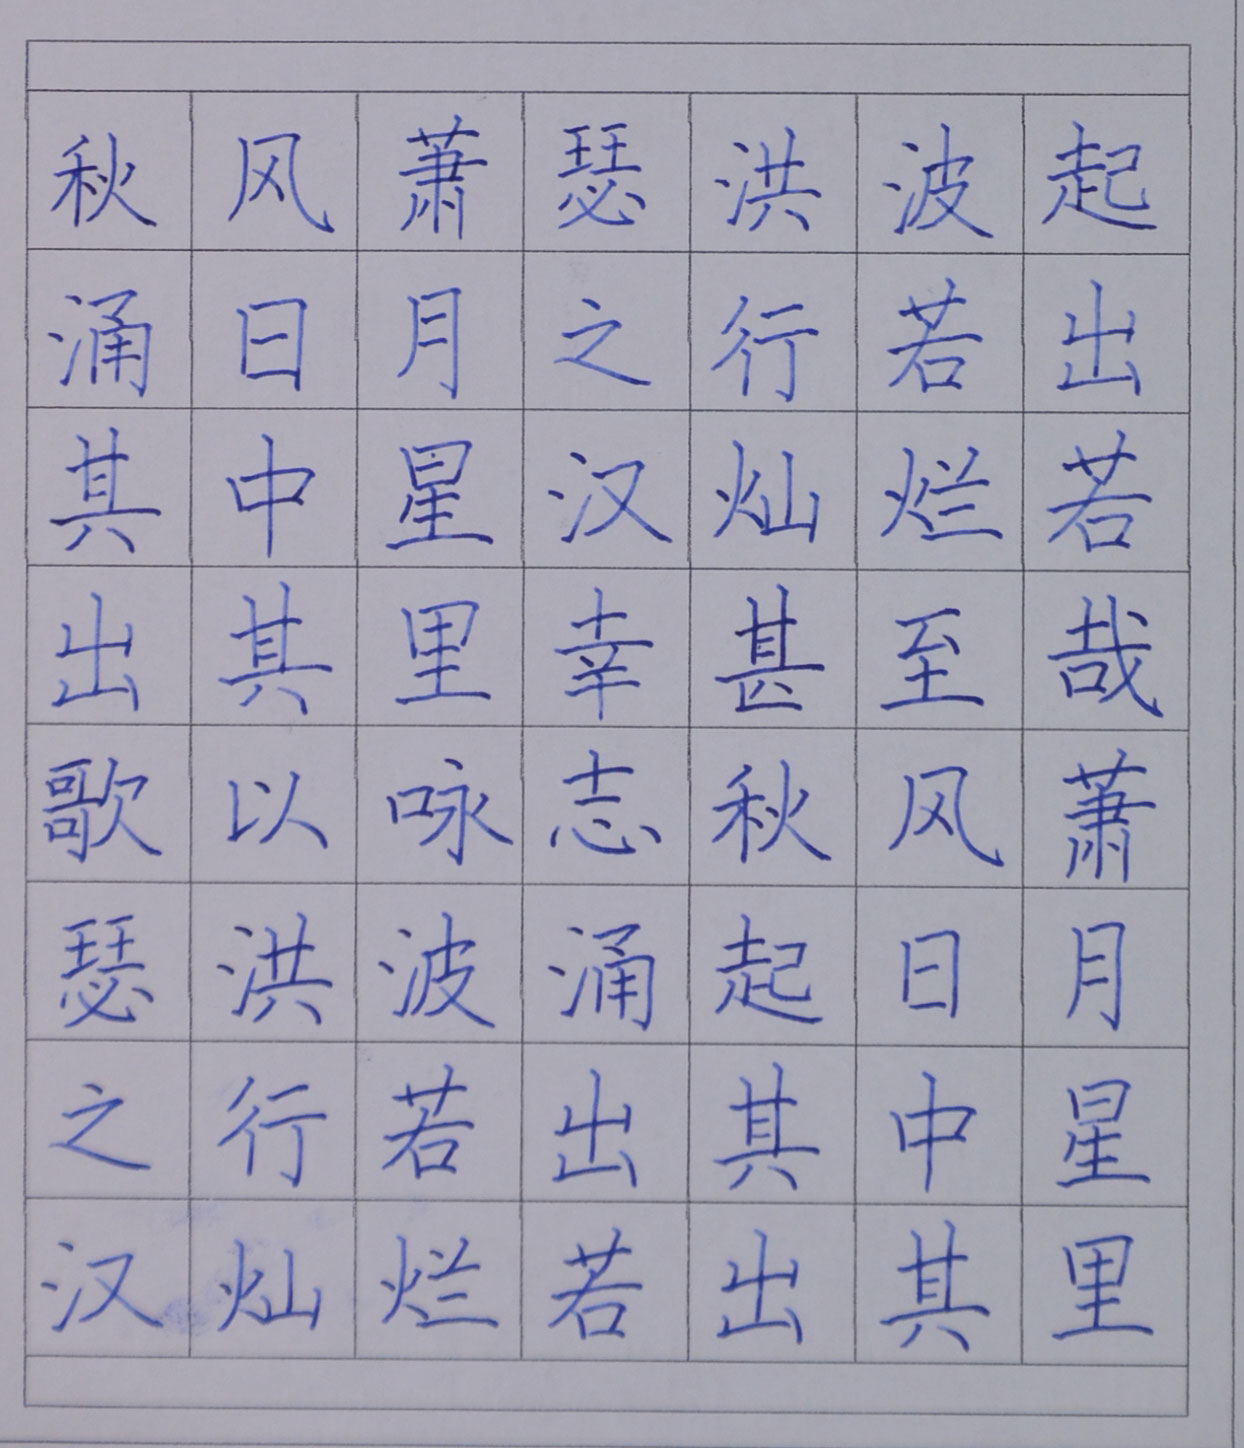 秋风萧瑟洪波起
涌日月之行若出
其中星汉灿烂若
出其里幸甚至哉
歌以咏志秋风萧
瑟洪波涌起日月
之行若出其中星
汉灿烂若出其里